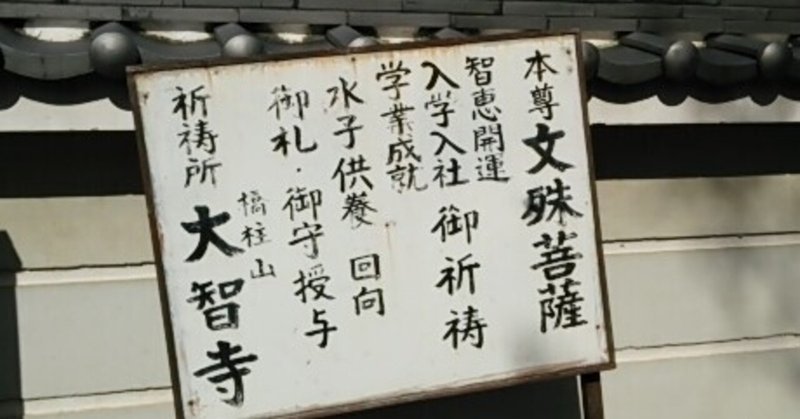 本尊 文殊菩薩
智恵開運
入学入社 御祈祷
学業成就
水子供養 回向
御札・御守授与
橋柱山
祈祷所 大智寺